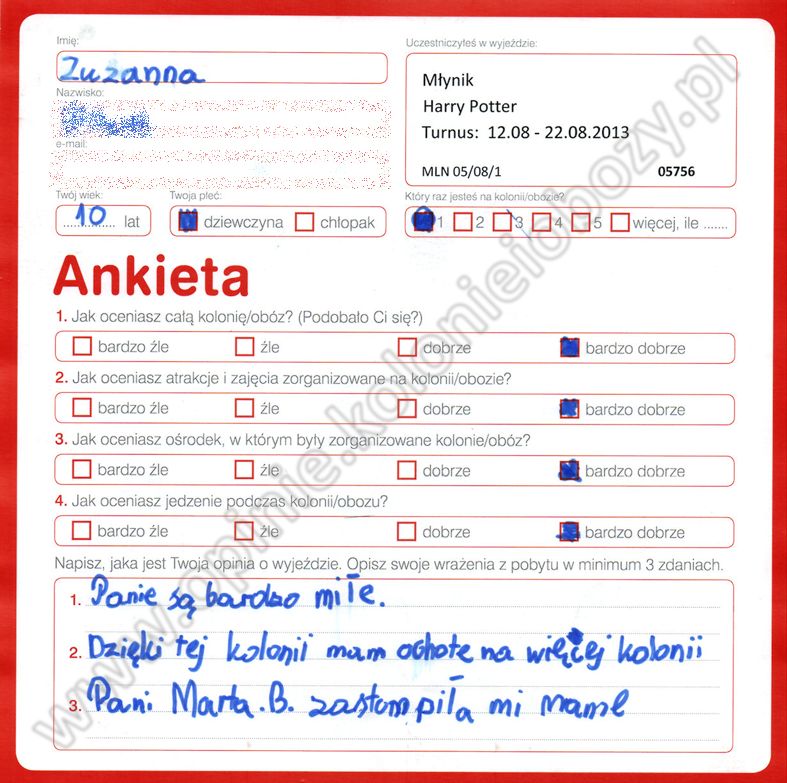 Imię:
Zuzanna
Nazwisko:
e-mail:
Twój wiek:
10 lat
Twoja płeć:
dziewczyna chłopak
Uczestniczyłeś w wyjeździe:
Młynik
Harry Potter
Turnus: 12.08 - 22.08.2013
MLN 05/08/1 05756
Który raz jesteś na kolonii/obozie?
1 2 3 4 5 więcej, ile .......
Ankieta
1. Jak oceniasz całą kolonię/obóz? (Podobało Ci się?)
bardzo źle źle dobrze bardzo dobrze
2. Jak oceniasz atrakcje i zajęcia zorganizowane na kolonii/obozie?
bardzo źle źle dobrze bardzo dobrze
3. Jak oceniasz ośrodek, w którym były zorganizowane kolonie/obóz?
bardzo źle źle dobrze bardzo dobrze
4. Jak oceniasz jedzenie podczas kolonii/obozu?
bardzo źle źle dobrze bardzo dobrze
Napisz, jaka jest Twoja opinia o wyjeździe. Opisz swoje wrażenia z pobytu w minimum 3 zdaniach.
1. Panie są bardzo miłe.
2. Dzięki tej kolonii mam ochote na więcej kolonii
3. Pani Marta. B. zastompiła mi mame
www.opinie.kolonieiobozy.pl